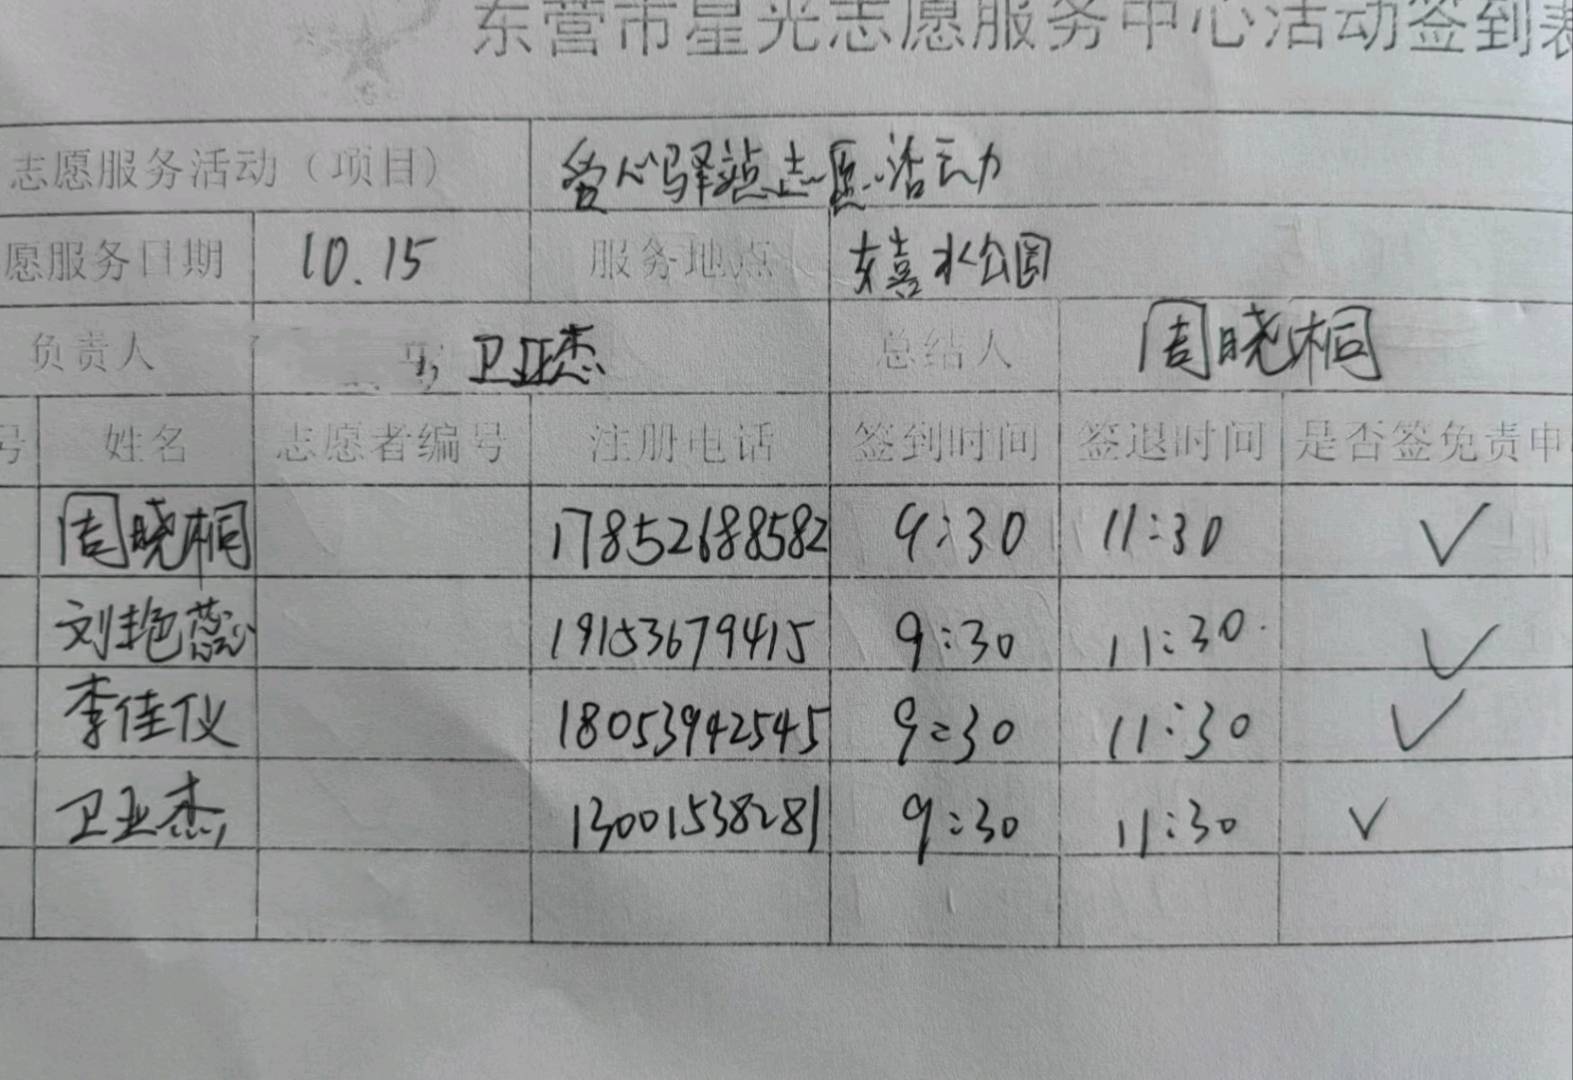 东营市星光志愿服务中心活动签到表
志愿服务活动（项目） 爱心驿站志愿活动
愿服务日期 10.15 服务地点 东喜水公园
负责人 卫亚杰 总结人 周晓桐
号 姓名 志愿者编号 注册电话 签到时间 签退时间 是否签免责申
周晓桐 17852688582 9:30 11:30 ✓
刘艳蕊 19153679415 9:30 11:30 ✓
李佳仪 18053942545 9:30 11:30 ✓
卫亚杰 13001538281 9:30 11:30 ✓